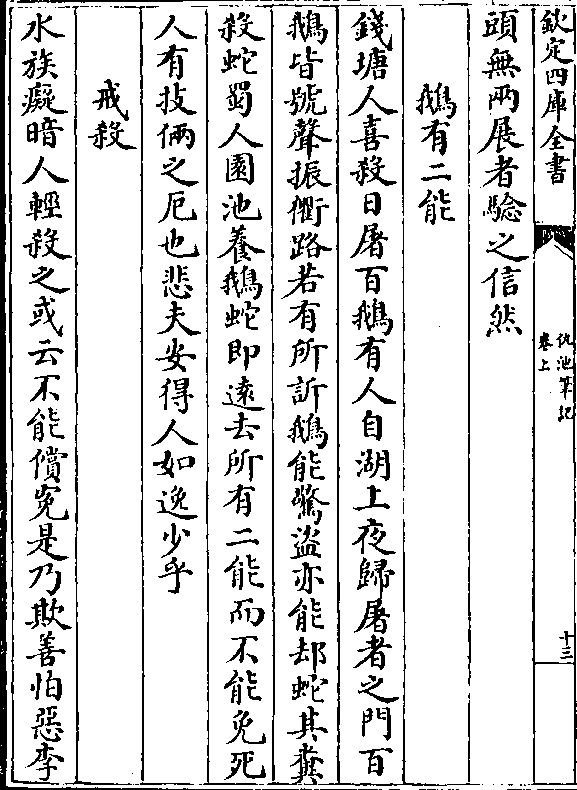 欽定四庫全書
仇池筆記
卷上
十三
頭無兩展者驗之信然
鵝有二能
錢塘人喜殺日屠百鵝有人自湖上夜歸屠者之門百
鵝皆號聲振衢路若有所訴鵝能驚盜亦能却蛇其糞
殺蛇蜀人園池養鵝蛇即逺去所有二能而不能免死
人有技倆之厄也悲夫安得人如逸少乎
戒殺
水族癡暗人輕殺之或云不能償寃是乃欺善怕惡李